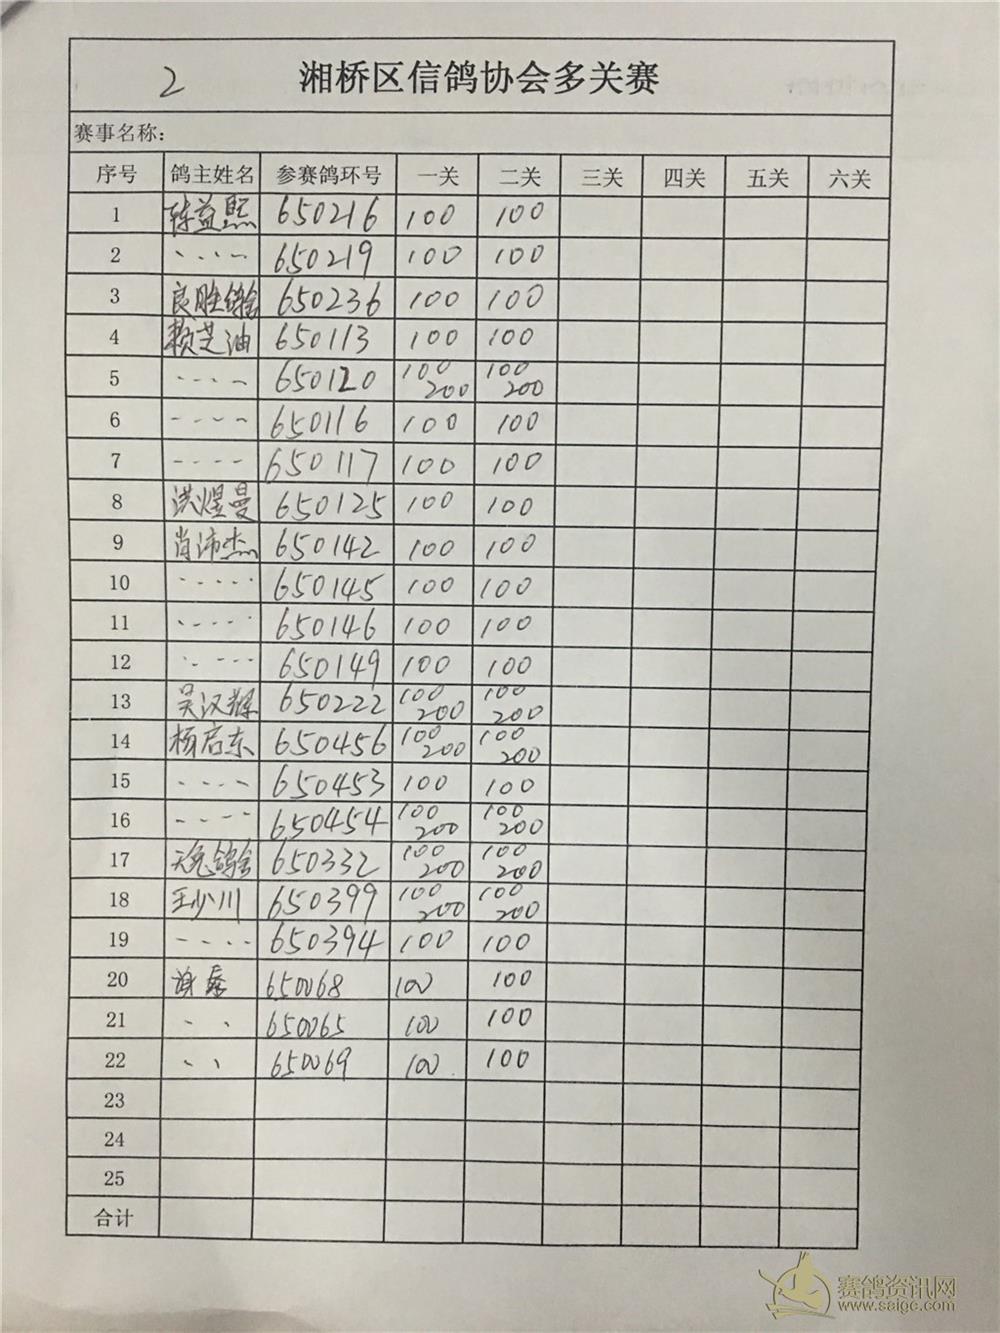 2 湘桥区信鸽协会多关赛
赛事名称：
序号 鸽主姓名 参赛鸽环号 一关 二关 三关 四关 五关 六关
1 益熙 650216 100 100
2 、、、、 650219 100 100
3 良胜鸽舍 650236 100 100
4 赖芝油 650113 100 100
5 、、、、 650120 100 200 100 200
6 、、、、 650116 100 100
7 、、、、 650117 100 100
8 洪煜曼 650125 100 100
9 肖沛杰 650142 100 100
10 、、、、 650145 100 100
11 、、、、 650146 100 100
12 、、、、 650149 100 100
13 吴汉辉 650222 100 200 100 200
14 杨启东 650456 100 200 100 200
15 、、、、 650453 100 100
16 、、、、 650454 100 200 100 200
17 鸽舍 650332 100 200 100 200
18 王少川 650399 100 200 100 200
19 、、、、 650394 100 100
20 谢 650068 100 100
21 、、 650065 100 100
22 、、 650069 100 100
23
24
25
合计
赛鸽资讯网
www.saigc.com